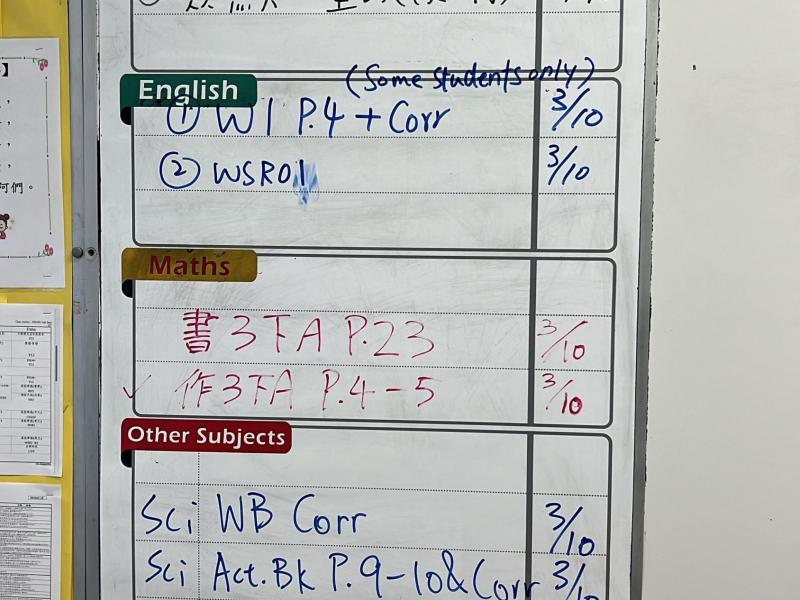 English
(Some students only)
① W1 P.4 + Corr 3/10
② WSR01 3/10
Maths
書 3下A P.23 3/10
✓ 作3下A P.4-5 3/10
Other Subjects
Sci WB Corr 3/10
Sci Act.Bk P.9-10 & Corr 3/10